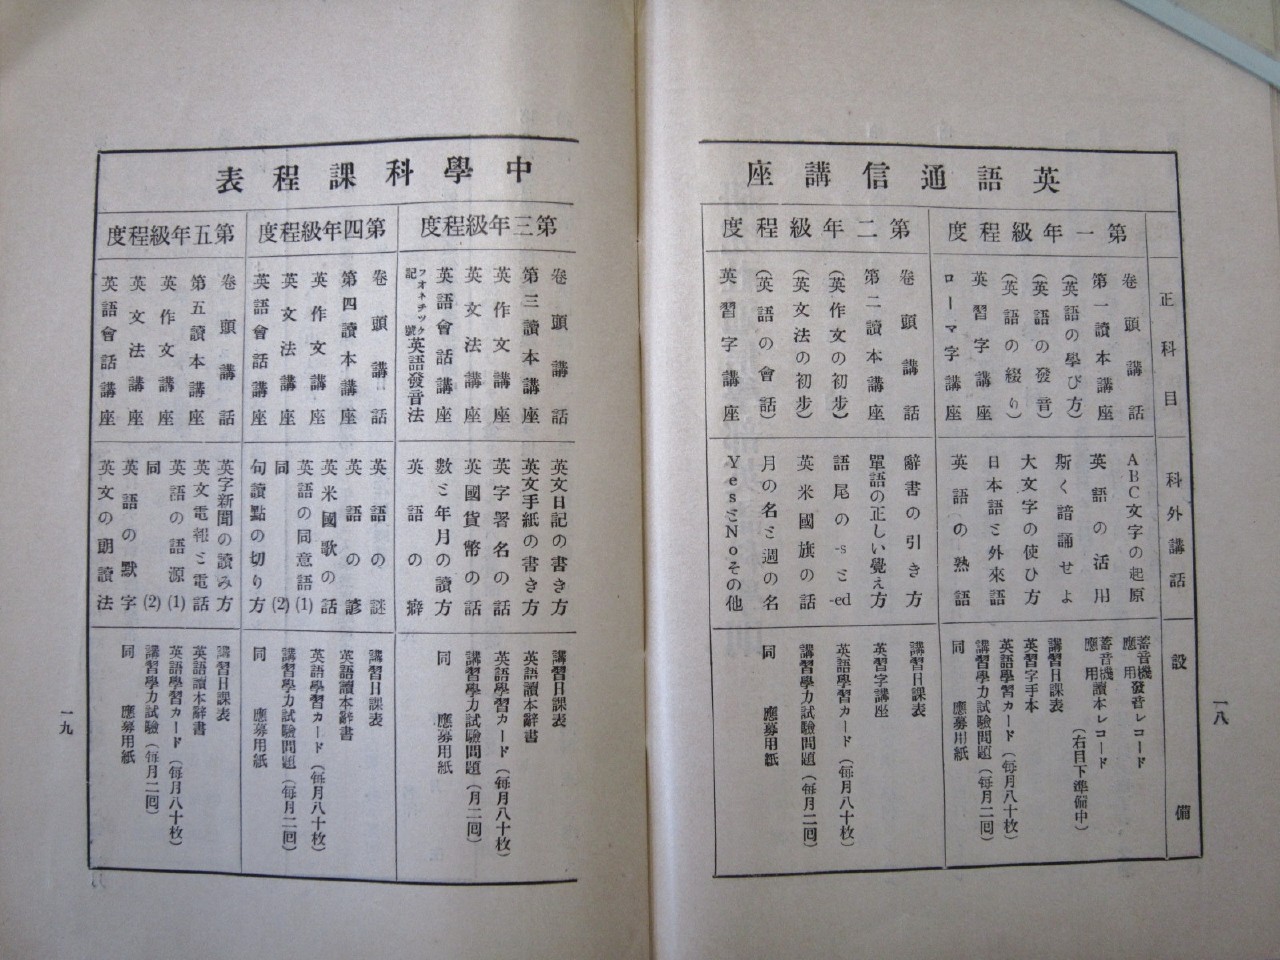 英語通信講座
正科目
科外講話
設備
第一年級程度
卷頭講話
第一讀本講座
(英語の學び方)
(英語の發音)
(英語の綴り)
英習字講座
ローマ字講座
ABC文字の起原
英語の活用
斯く諳誦せよ
大文字の使ひ方
日本語ミ外來語
英語の熟語
蓄音機應用發音レコード
蓄音機應用讀本レコード
(右目下準備中)
講習日課表
英習字手本
英語學習カード(每月八十枚)
講習學力試驗問題(每月二囘)
同 應募用紙
第二年級程度
卷頭講話
第二讀本講座
(英作文の初步)
(英文法の初步)
(英語の會話)
英習字講座
辭書の引き方
單語の正しい覺え方
語尾の-sミ-ed
英米國旗の話
月の名ミ週の名
YesミNoその他
講習日課表
英習字講座
英語學習カード(每月八十枚)
講習學力試驗問題(每月二囘)
同 應募用紙
一八
中學科課程表
第三年級程度
卷頭講話
第三讀本講座
英作文講座
英文法講座
英語會話講座
フオネチツク記號英語發音法
英文日記の書き方
英文手紙の書き方
英字署名の話
英國貨幣の話
數ミ年月の讀方
英語の癖
講習日課表
英語讀本辭書
英語學習カード(每月八十枚)
講習學力試驗問題(月二囘)
同 應募用紙
第四年級程度
卷頭講話
第四讀本講座
英作文講座
英文法講座
英語會話講座
英語の謎
英語の諺
英米國歌の話
英語の同意語(1)
同(2)
句讀點の切り方
講習日課表
英語讀本辭書
英語學習カード(每月八十枚)
講習學力試驗問題(每月二囘)
同 應募用紙
第五年級程度
卷頭講話
第五讀本講座
英作文講座
英文法講座
英語會話講座
英字新聞の讀み方
英文電報ミ電話
英語の語源(1)
同(2)
英語の默字
英文の朗讀法
講習日課表
英語讀本辭書
英語學習カード(每月八十枚)
講習學力試驗(每月二囘)
同 應募用紙
一九